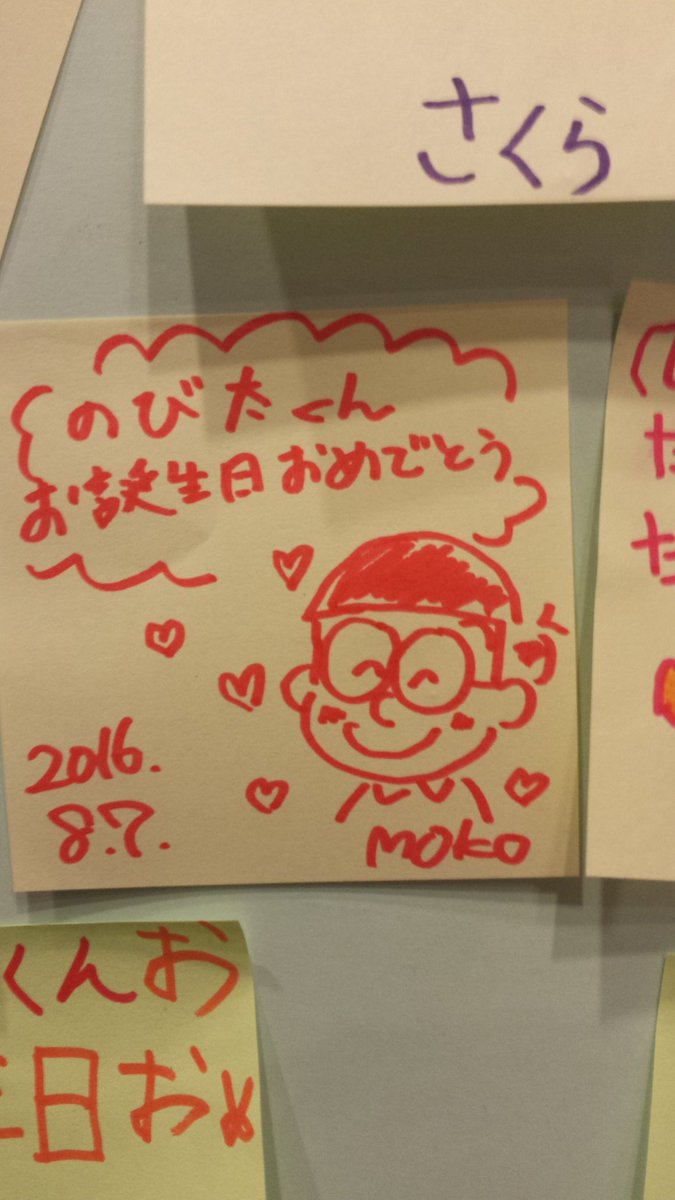 さくら
のび太くん
お誕生日おめでとう
2016.
8.7.
MOKO
くんお
日おめ